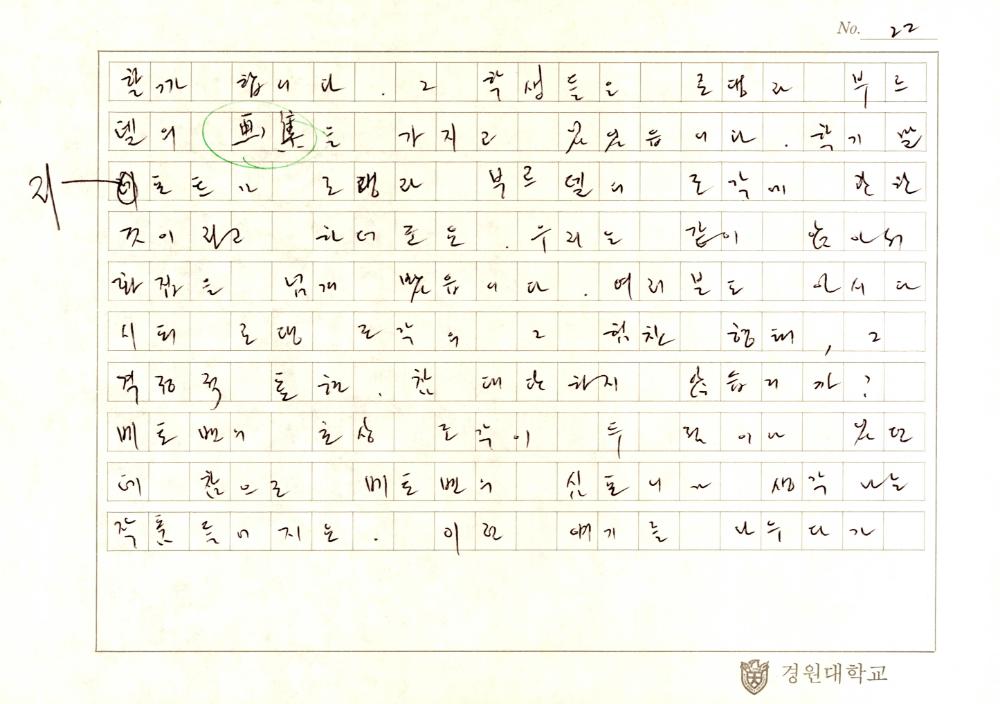 No. 22
할까 합니다. 그 학생들은 로댕과 부르
델의 画集을 가지고 있었읍니다. 학기 말
리포트가 로댕과 부르델의 조각에 관한
것이라고 하더군요. 우리는 같이 앉아서
화집을 넘겨 봤읍니다. 여러분도 아시다
시피 로댕 조각의 그 힘찬 형태, 그
격정적 표현. 참 대단하지 않습니까?
베토벤의 초상 조각이 두 점이나 있던
데 참으로 베토벤의 심포니가 생각나는
작품들이지요. 이런 얘기를 나누다가
리
경원대학교